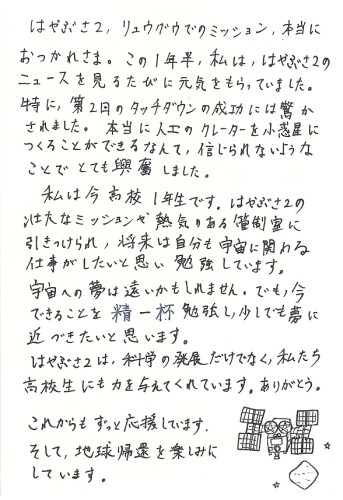 はやぶさ2, リュウグウでのミッション, 本当に
おつかれさま。この1年半, 私は, はやぶさ2の
ニュースを見るたびに元気をもらっていました。
特に, 第2回のタッチダウンの成功には驚か
されました。本当に人工のクレーターを小惑星に
つくることができるなんて, 信じられないような
ことでとても興奮しました。
私は今高校1年生です。はやぶさ2の
壮大なミッションや熱気のある管制室に
引きつけられ, 将来は自分も宇宙に関わる
仕事がしたいと思い勉強しています。
宇宙への夢は遠いかもしれません。でも, 今
できることを精一杯勉強し, 少しでも夢に
近づきたいと思います。
はやぶさ2は, 科学の発展だけでなく, 私たち
高校生にも力を与えてくれています。ありがとう。
これからもずっと応援しています.
そして, 地球帰還を楽しみに
しています。